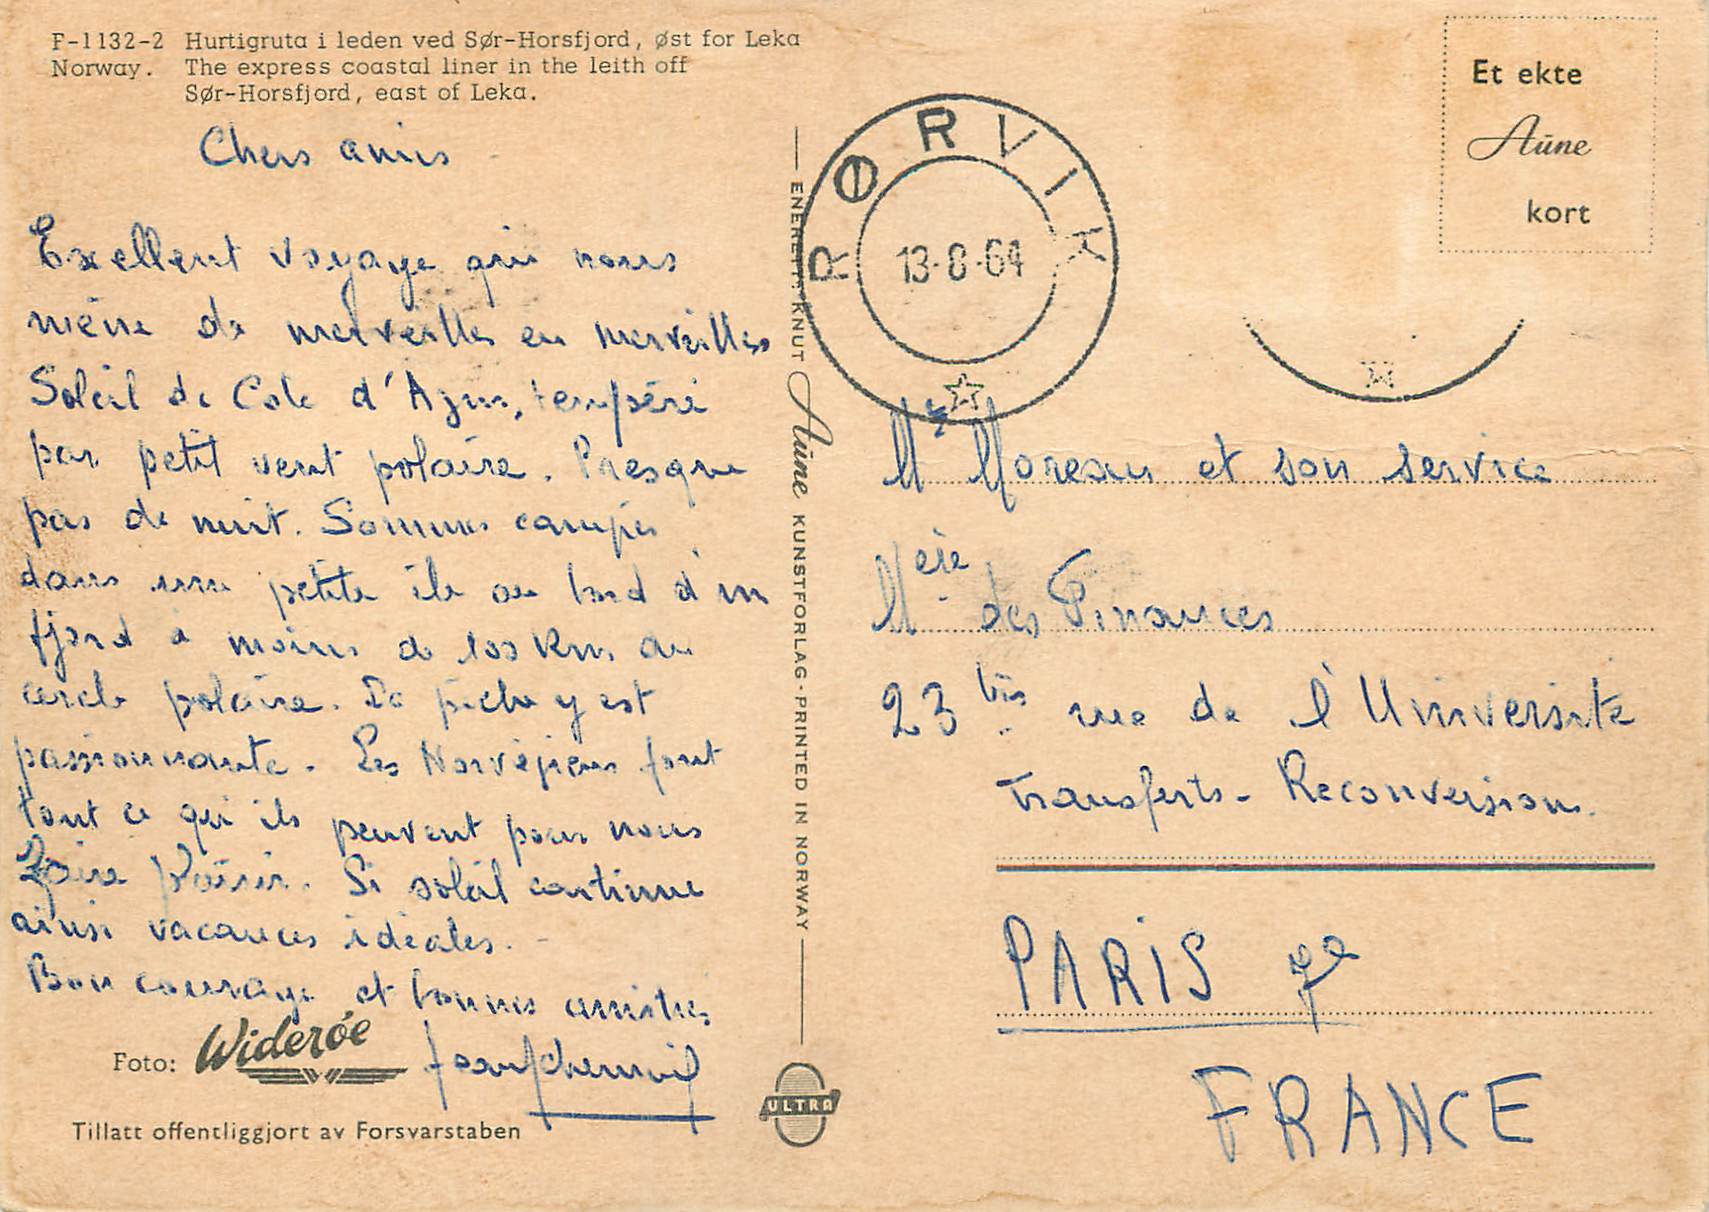 F-1132-2 Hurtigruta i leden ved Sør-Horsfjord, øst for Leka
Norway. The express coastal liner in the leith off
Sør-Horsfjord, east of Leka.
Chers amis
Excellent voyage qui nous
mène de merveilles en merveilles
Soleil de Cote d'Azur, tempéré
par petit vent polaire. Presque
pas de nuit. Sommes campés
dans une petite île au bord d'un
fjord à moins de 100 Km du
cercle polaire. La pêche y est
passionnante. Les Norvégiens font
tout ce qu'ils peuvent pour nous
faire plaisir. Si soleil continue
ainsi vacances idéales.
Bon courage et bonnes amitiés
Foto: Widerøe
Tillatt offentliggjort av Forsvarstaben
ENERETT: KNUT Aūne KUNSTFORLAG · PRINTED IN NORWAY
ULTRA
RØRVIK
13-8-64
Et ekte
Aūne
kort
Mr Moreau et son service
Mere des Finances
23 bis rue de l'Université
Transferts - Reconversions.
PARIS 7e
FRANCE